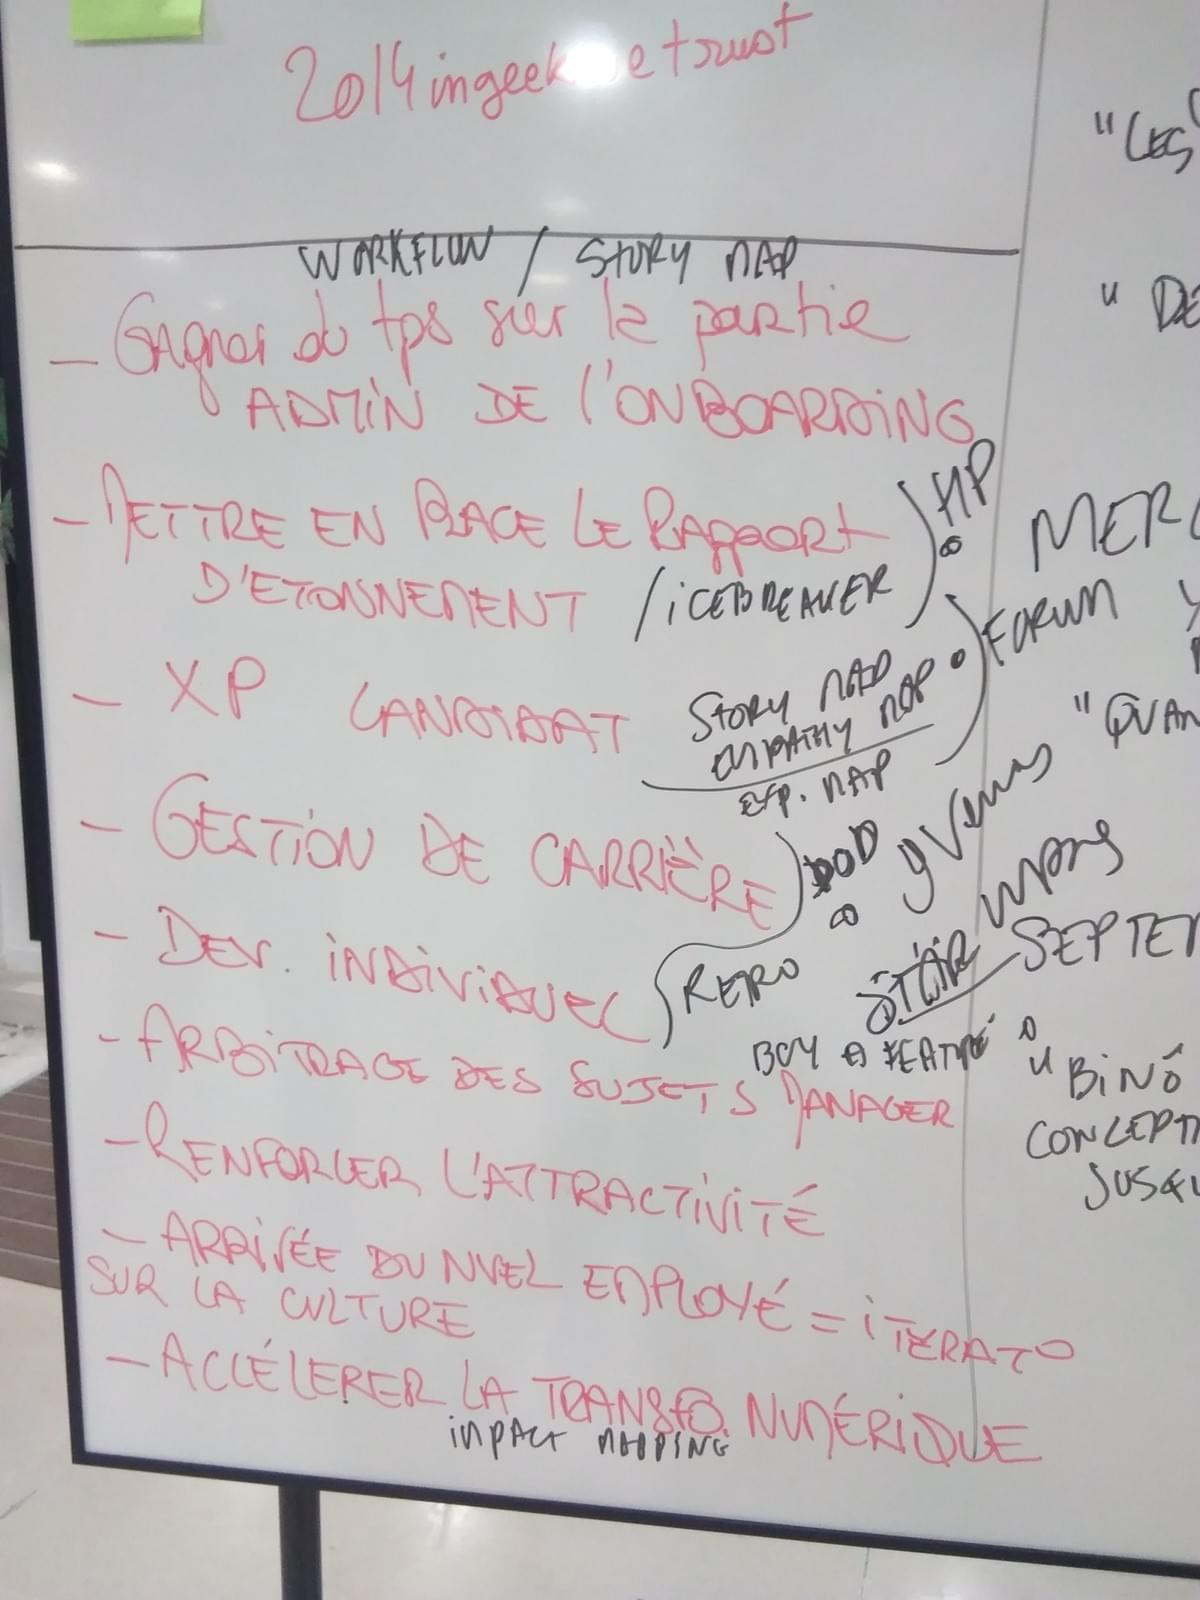 2014ingeek etrust
WORKFLOW / STORY MAP
- Gagner du tps sur la partie
ADMIN DE L'ONBOARDING
- METTRE EN PLACE LE RAPPORT
D'ETONNEMENT / iCEBREAKER
HP
- XP CANDIDAT
STORY MAP
EMPATHY MAP
EXP. MAP
FORUM
- GESTION DE CARRIÈRE
- DEV. INDIVIDUEL
RETRO
BUY A FEATURE
- ARBITRAGE DES SUJETS MANAGER
- RENFORCER L'ATTRACTIVITÉ
- ARRIVÉE DU NVEL EMPLOYÉ = iTERATO
SUR LA CULTURE
- ACCÉLERER LA TRANSFO. NUMÉRIQUE
iMPACT MAPPING
"LES
" DE
MERC
"QUAN
SEPTE
"BINÔ
CONCEPTI
JUSQU